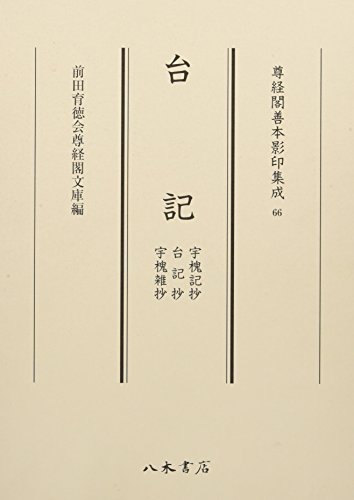 尊経閣善本影印集成 66
台記
宇槐記抄
台記抄
宇槐雑抄
前田育徳会尊経閣文庫編
八木書店